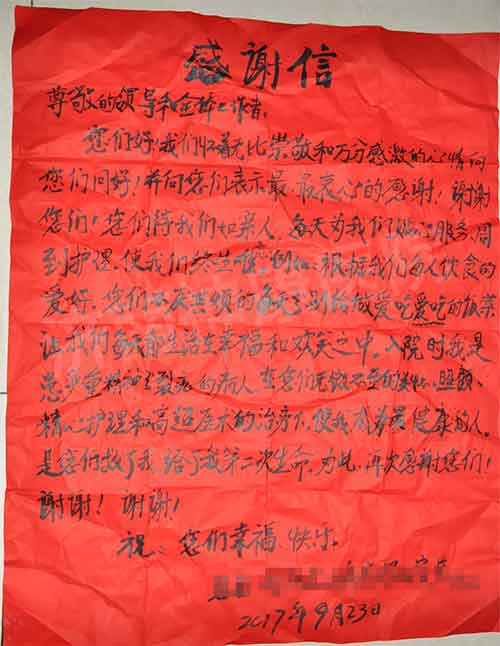 感谢信
尊敬的领导和全体工作者：
您们好！我们怀着无比崇敬和万分感激的心情向
您们问好！并向您们表示最、最衷心的感谢！谢谢
您们！您们待我们如亲人，每天为我们服务，周
到护理，使我们终生难。例如：根据我们每人饮食的
爱好，您们不厌其烦的每天分别给做爱吃爱吃的饭菜
让我们每天都生活在幸福和欢笑之中。入院时我是
患严重精神分裂症的病人在您们无微不至的关怀、照顾、
精心护理和高超医术的治疗下，使我成为最健康的人。
是您们救了我，给了我第二次生命，为此，再次感谢您们！
谢谢！谢谢！
祝：您们幸福、快乐。
2017年9月23日